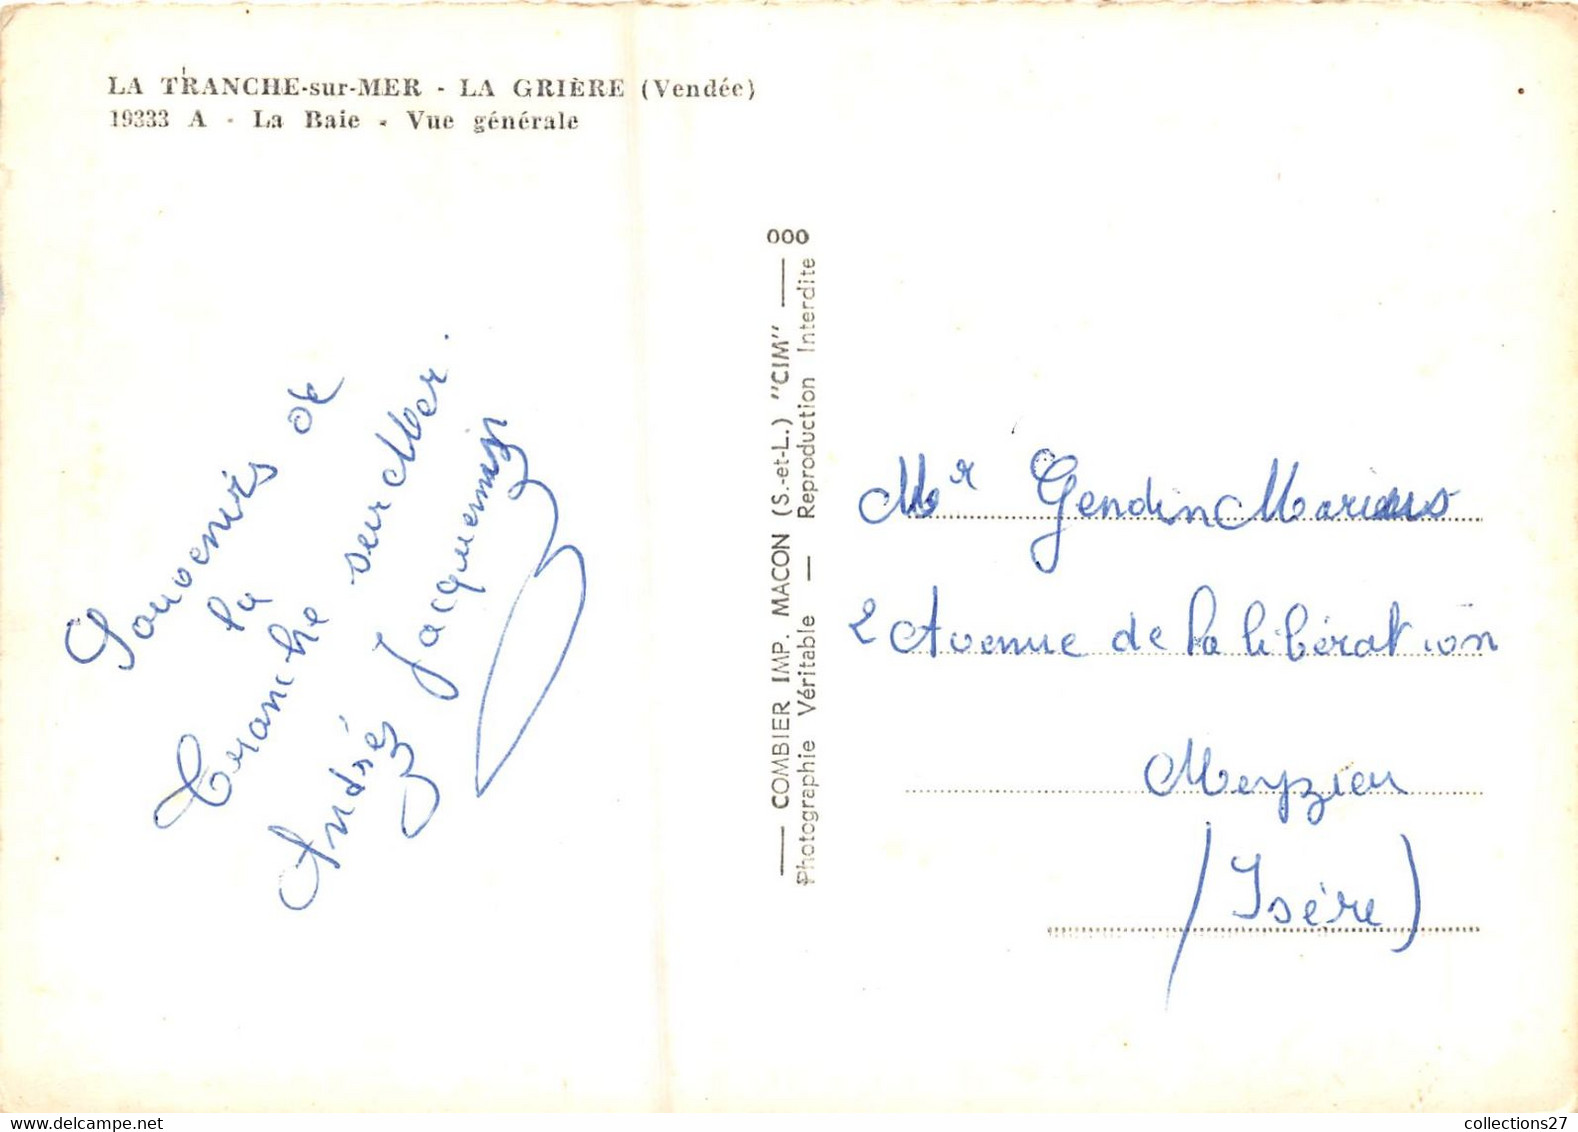 LA TRANCHE-sur-MER - LA GRIÈRE (Vendée)
19333 A - La Baie - Vue générale
Souvenirs de
la
Tranche sur Mer.
André Jacquemin
000
COMBIER IMP. MACON (S.-et-L.) "CIM"
Photographie Véritable — Reproduction Interdite
Mr Gendin Marius
2 Avenue de la libération
Meyzieu
(Isère)
collections27